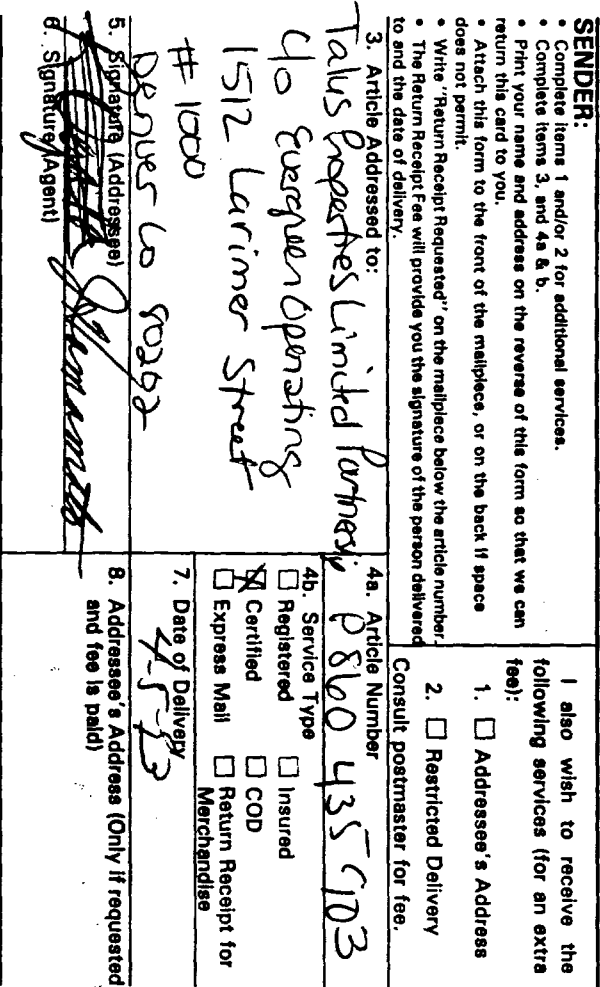 SENDER:
• Complete items 1 and/or 2 for additional services.
• Complete items 3, and 4a & b.
• Print your name and address on the reverse of this form so that we can
return this card to you.
• Attach this form to the front of the mailpiece, or on the back if space
does not permit.
• Write "Return Receipt Requested" on the mailpiece below the article number.
• The Return Receipt Fee will provide you the signature of the person delivered
to and the date of delivery.
I also wish to receive the
following services (for an extra
fee):
1. ☐ Addressee's Address
2. ☐ Restricted Delivery
Consult postmaster for fee.
3. Article Addressed to:
Talus Properties Limited Partnership
c/o Evergreen Operating
1512 Larimer Street
# 1000
Denver Co 80202
4a. Article Number
P 860 435 903
4b. Service Type
☐ Registered ☐ Insured
☒ Certified ☐ COD
☐ Express Mail ☐ Return Receipt for
Merchandise
7. Date of Delivery
4-5-93
5. Signature (Addressee)
6. Signature (Agent)
8. Addressee's Address (Only if requested
and fee is paid)